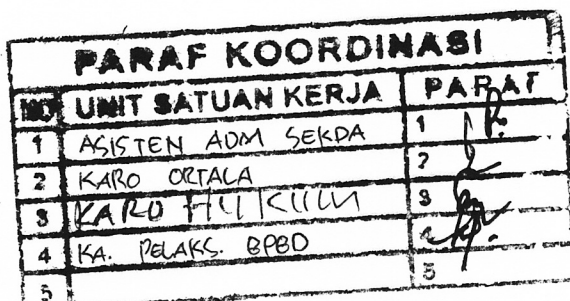 PARAF KOORDINASI
NO UNIT SATUAN KERJA PARAF
1 ASISTEN ADM SEKDA 1
2 KARO ORTALA 2
3 KARO HUKUM 3
4 KA. PELAKS. BPBD 4
5 5